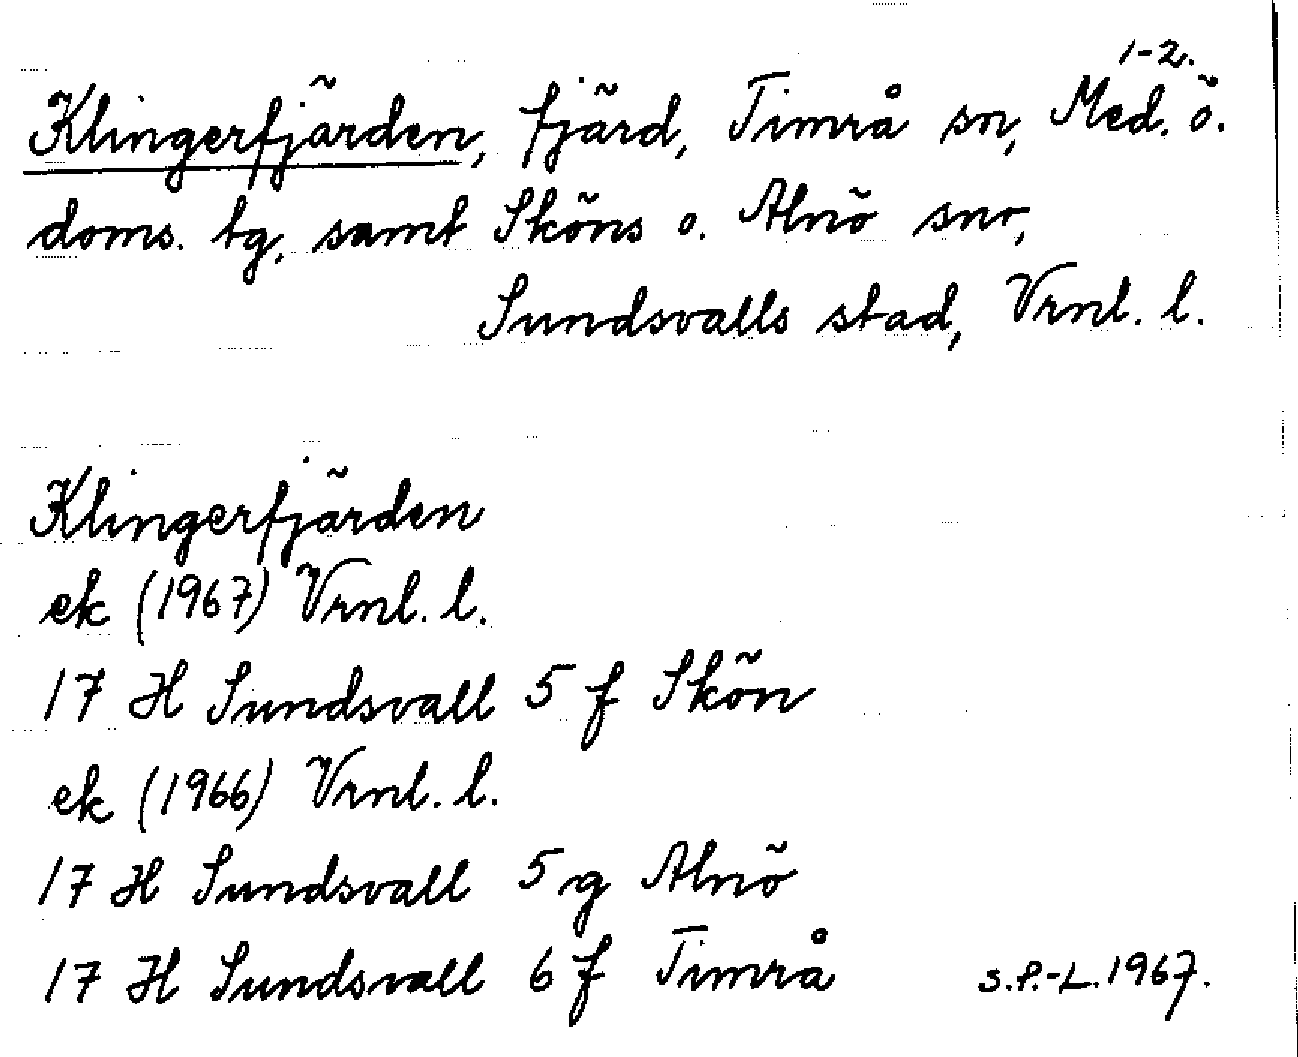 1-2.
Klingerfjärden, fjärd, Timrå sn, Med. ö.
doms. tg, samt Sköns o. Alnö snr,
Sundsvalls stad, Vrnl. l.
Klingerfjärden
ek (1967) Vrnl. l.
17 H Sundsvall 5 f Skön
ek (1966) Vrnl. l.
17 H Sundsvall 5 g Alnö
17 H Sundsvall 6 f Timrå S.P.-L. 1967.